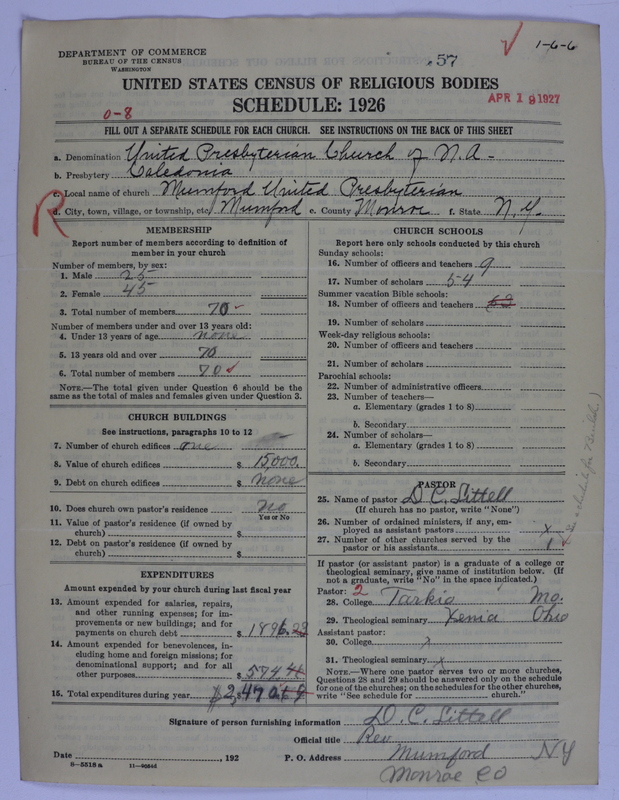 1-6-6
DEPARTMENT OF COMMERCE
BUREAU OF THE CENSUS
WASHINGTON
57
UNITED STATES CENSUS OF RELIGIOUS BODIES
SCHEDULE: 1926
APR 19 1927
0-8
FILL OUT A SEPARATE SCHEDULE FOR EACH CHURCH. SEE INSTRUCTIONS ON THE BACK OF THIS SHEET
a. Denomination United Presbyterian Church of N.A.-
b. Presbytery Caledonia
c. Local name of church Mumford United Presbyterian
R
d. City, town, village, or township, etc. Mumford e. County Monroe f. State N.Y.
MEMBERSHIP
Report number of members according to definition of
member in your church
Number of members, by sex:
1. Male 25
2. Female 45
3. Total number of members 70
Number of members under and over 13 years old:
4. Under 13 years of age none
5. 13 years old and over 70
6. Total number of members 70
NOTE.—The total given under Question 6 should be the
same as the total of males and females given under Question 3.
CHURCH BUILDINGS
See instructions, paragraphs 10 to 12
7. Number of church edifices one
8. Value of church edifices $ 15000.
9. Debt on church edifices $ none
10. Does church own pastor's residence no
Yes or No
11. Value of pastor's residence (if owned by
church) $
12. Debt on pastor's residence (if owned by
church) $
EXPENDITURES
Amount expended by your church during last fiscal year
13. Amount expended for salaries, repairs,
and other running expenses; for im-
provements or new buildings; and for
payments on church debt $ 1896.23
14. Amount expended for benevolences, in-
cluding home and foreign missions; for
denominational support; and for all
other purposes $ 574.
15. Total expenditures during year $ 2,470
CHURCH SCHOOLS
Report here only schools conducted by this church
Sunday schools:
16. Number of officers and teachers 9
17. Number of scholars 54
Summer vacation Bible schools:
18. Number of officers and teachers 63
19. Number of scholars
Week-day religious schools:
20. Number of officers and teachers
21. Number of scholars
Parochial schools:
22. Number of administrative officers
23. Number of teachers—
a. Elementary (grades 1 to 8)
b. Secondary
24. Number of scholars—
a. Elementary (grades 1 to 8)
b. Secondary
PASTOR
25. Name of pastor D. C. Littell
(If church has no pastor, write "None")
26. Number of ordained ministers, if any, em-
ployed as assistant pastors x
27. Number of other churches served by the
pastor or his assistants 1
schedule for
If pastor (or assistant pastor) is a graduate of a college or
theological seminary, give name of institution below. (If
not a graduate, write "No" in the space indicated.)
Pastor: 2
28. College Tarkio Mo.
29. Theological seminary Xenia Ohio
Assistant pastor:
30. College ?
31. Theological seminary x
NOTE.—Where one pastor serves two or more churches,
Questions 28 and 29 should be answered only on the schedule
for one of the churches; on the schedules for the other churches,
write "See schedule for ........ church."
Signature of person furnishing information D. C. Littell
Official title Rev
Date , 192 P. O. Address Mumford NY
8-5518a 11-9034d Monroe Co